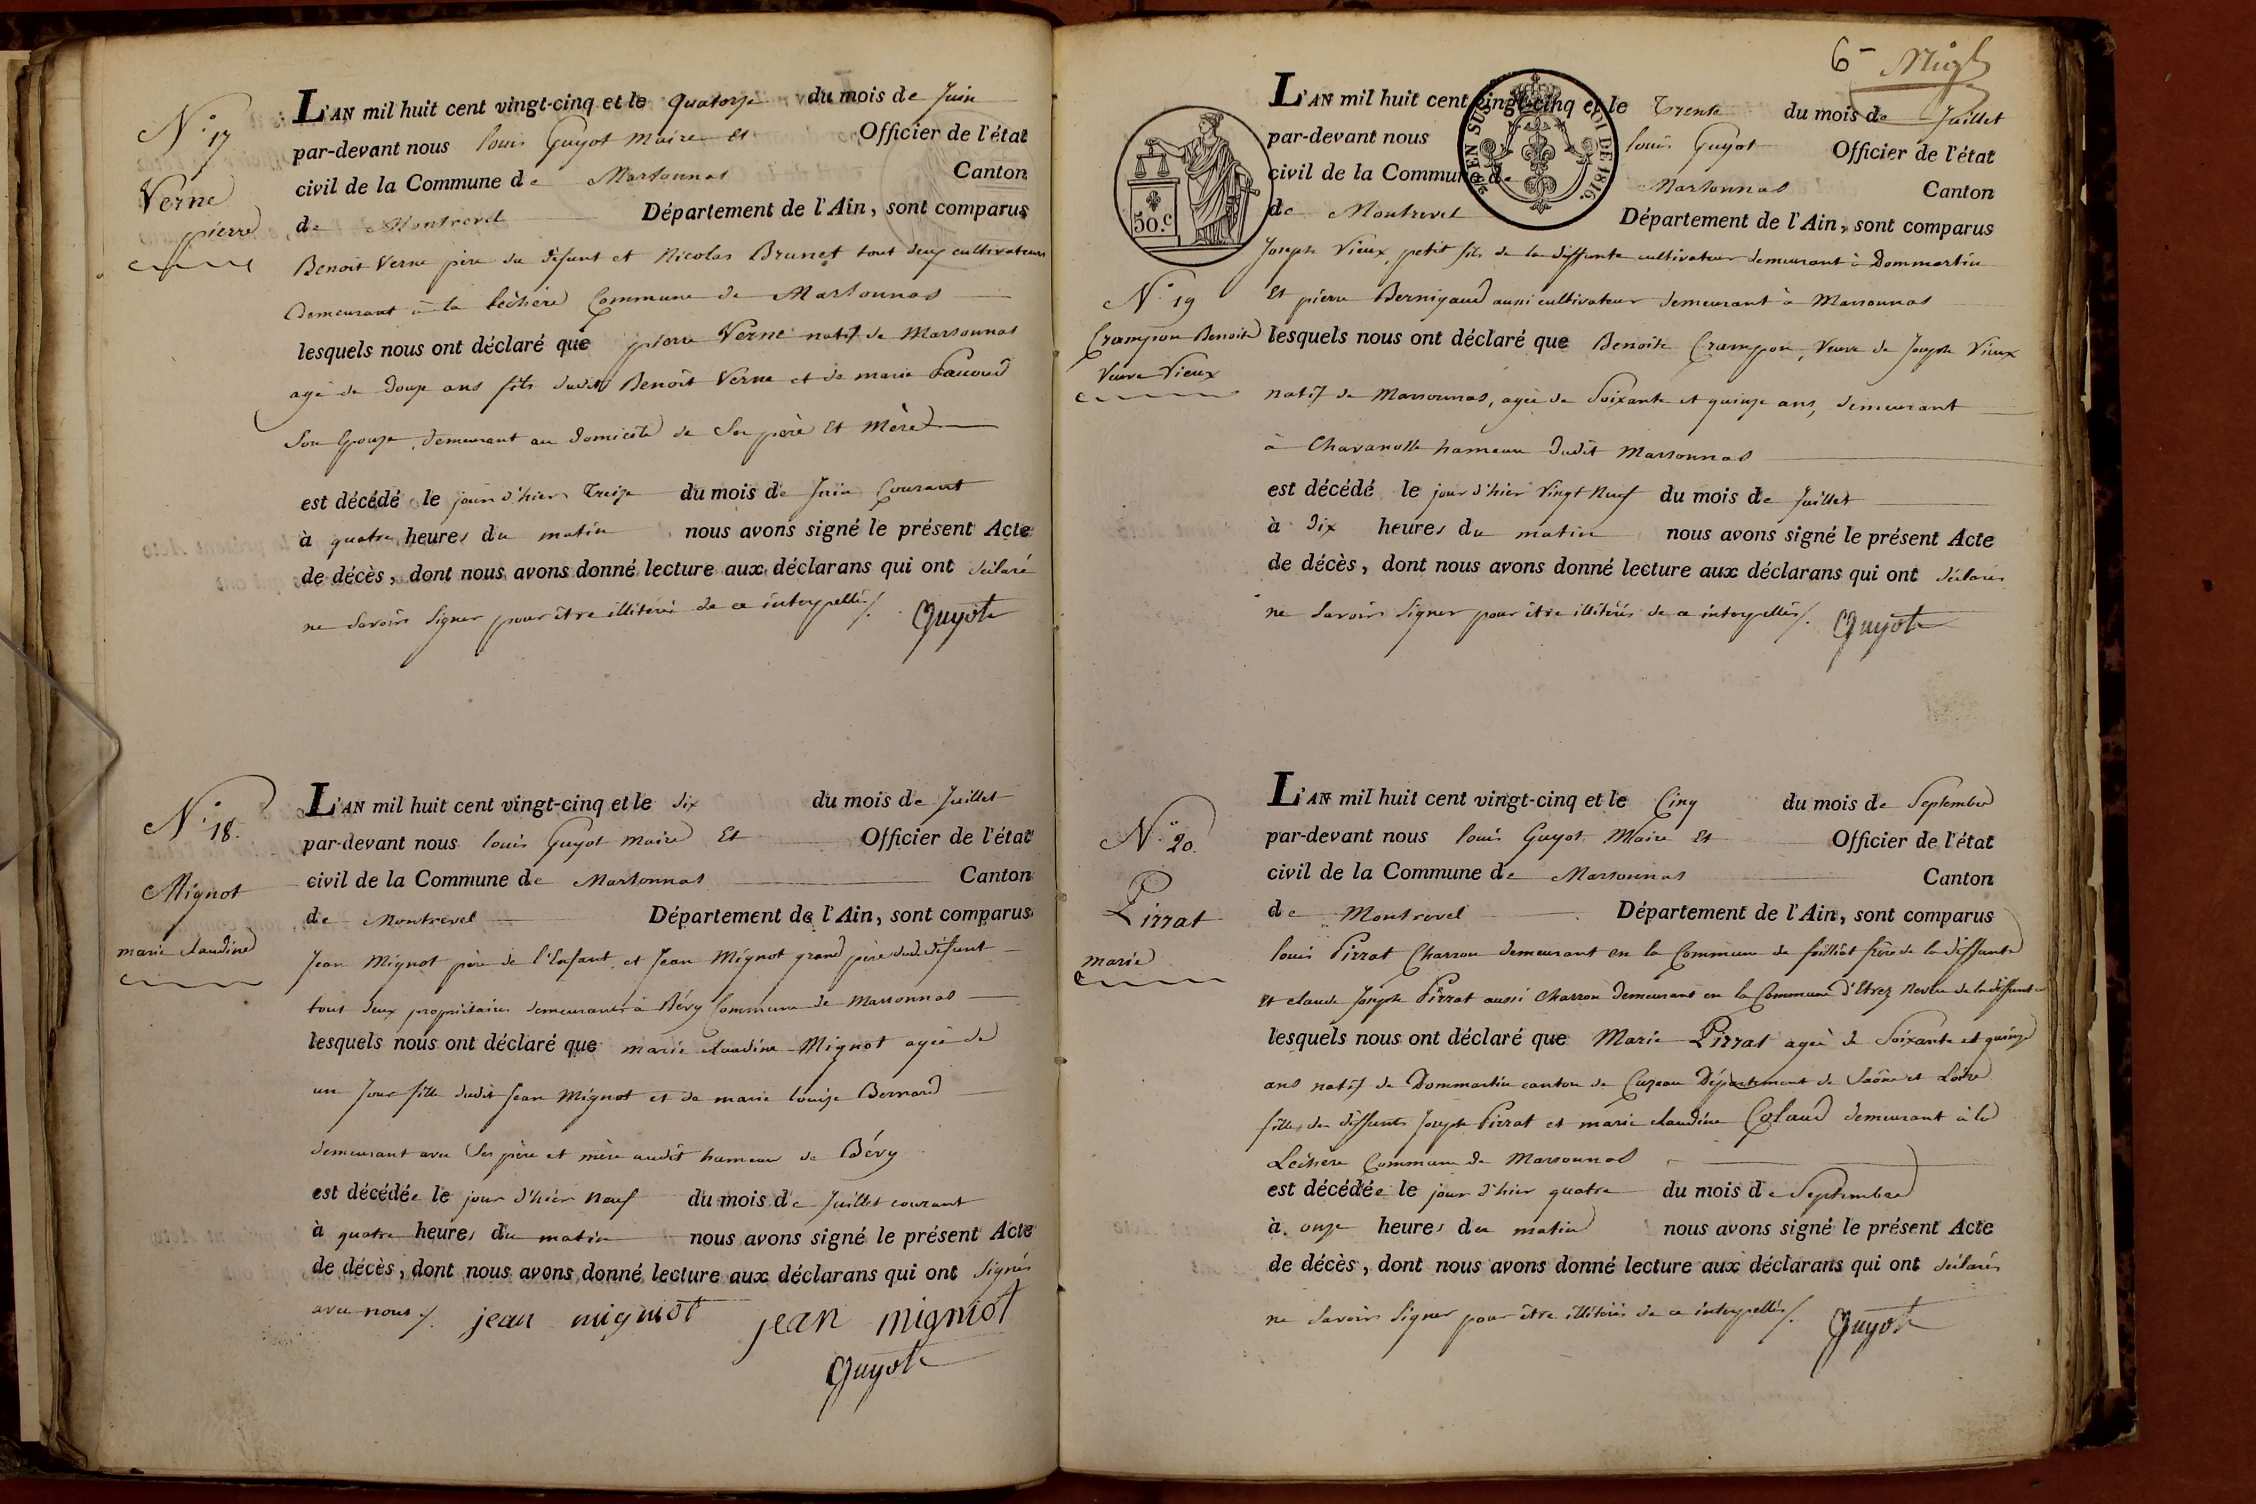 N.° 17
Verne
pierre
L'AN mil huit cent vingt-cinq et le quatorze du mois de Juin
par-devant nous louis Guyot Maire et Officier de l'état
civil de la Commune de Marsonnas Canton
de Montrevel Département de l'Ain, sont comparus
Benoit Verne père du défunt et Nicolas Brunet tout deux cultivateurs
demeurant à la Lechère Commune de Marsonnas
lesquels nous ont déclaré que pierre Verne natif de Marsonnas
agé de douze ans fils dudit Benoit Verne et de marie
son Epouse, demeurant au domicile de Son père Et Mère
est décédé le jour d'hier Treize du mois de Juin Courant
à quatre heures du matin nous avons signé le présent Acte
de décès, dont nous avons donné lecture aux déclarans qui ont déclaré
ne Savoir Signer pour être illitérés de ce interpellés/. Guyot
N.° 18.
Mignot
marie claudine
L'AN mil huit cent vingt-cinq et le dix du mois de Juillet
par-devant nous louis Guyot maire Et Officier de l'état
civil de la Commune de Marsonnas Canton
de Montrevel Département de l'Ain, sont comparus
Jean Mignot père de l'Enfant et Jean Mignot grand père du défunt
tout deux propriétaires demeurants à Bévy Commune de Marsonnas
lesquels nous ont déclaré que marie claudine Mignot agée de
un Jour fille dudit Jean Mignot et de marie louise Bernard
demeurant avec Ses père et mère audit hameau de Bévy
est décédée le jour d'hier neuf du mois de Juillet courant
à quatre heures du matin nous avons signé le présent Acte
de décès, dont nous avons donné lecture aux déclarans qui ont Signés
avec nous/. jean migniot jean migniot
Guyot
6
L'AN mil huit cent vingt-cinq et le Trente du mois de Juillet
par-devant nous louis Guyot Officier de l'état
civil de la Commune de Marsonnas Canton
de Montrevel Département de l'Ain, sont comparus
50.c
EN SUS
LOI DE 1816.
Joseph Vieux, petit fils de la deffunte cultivateur demeurant à Dommartin
N.° 19
Crampon Benoite
Veuve Vieux
Et pierre Bernigaud aussi cultivateur demeurant à Marsonnas
lesquels nous ont déclaré que Benoite Crampon, Veuve de Joseph Vieux
natif de Marsonnas, agée de Soixante et quinze ans, demeurant
à Chavanolle hameau dudit Marsonnas
est décédé le jour d'hier Vingt Neuf du mois de Juillet
à Dix heures du matin nous avons signé le présent Acte
de décès, dont nous avons donné lecture aux déclarans qui ont déclarés
ne Savoir Signer pour être illitérés de ce interpellés/. Guyot
N.° 20.
Pirrat
marie
L'AN mil huit cent vingt-cinq et le Cinq du mois de Septembre
par-devant nous louis Guyot Maire Et Officier de l'état
civil de la Commune de Marsonnas Canton
de Montrevel Département de l'Ain, sont comparus
louis Pirrat Charron demeurant en la Commune de foissiat frère de la deffunte
Et claude Joseph Pirrat aussi Charron demeurant en la Commune d'Etrez Neveu de la deffunte
lesquels nous ont déclaré que Marie Pirrat agée de Soixante et quinze
ans natif de Dommartin canton de Cuzeau Département de Saône et Loire
fille des deffunts Joseph Pirrat et marie claudine Colaud demeurant à la
Lechere Commune de Marsonnas
est décédée le jour d'hier quatre du mois de Septembre
à onze heures du matin nous avons signé le présent Acte
de décès, dont nous avons donné lecture aux déclarans qui ont déclarés
ne Savoir Signer pour être illitérés de ce interpellés/. Guyot